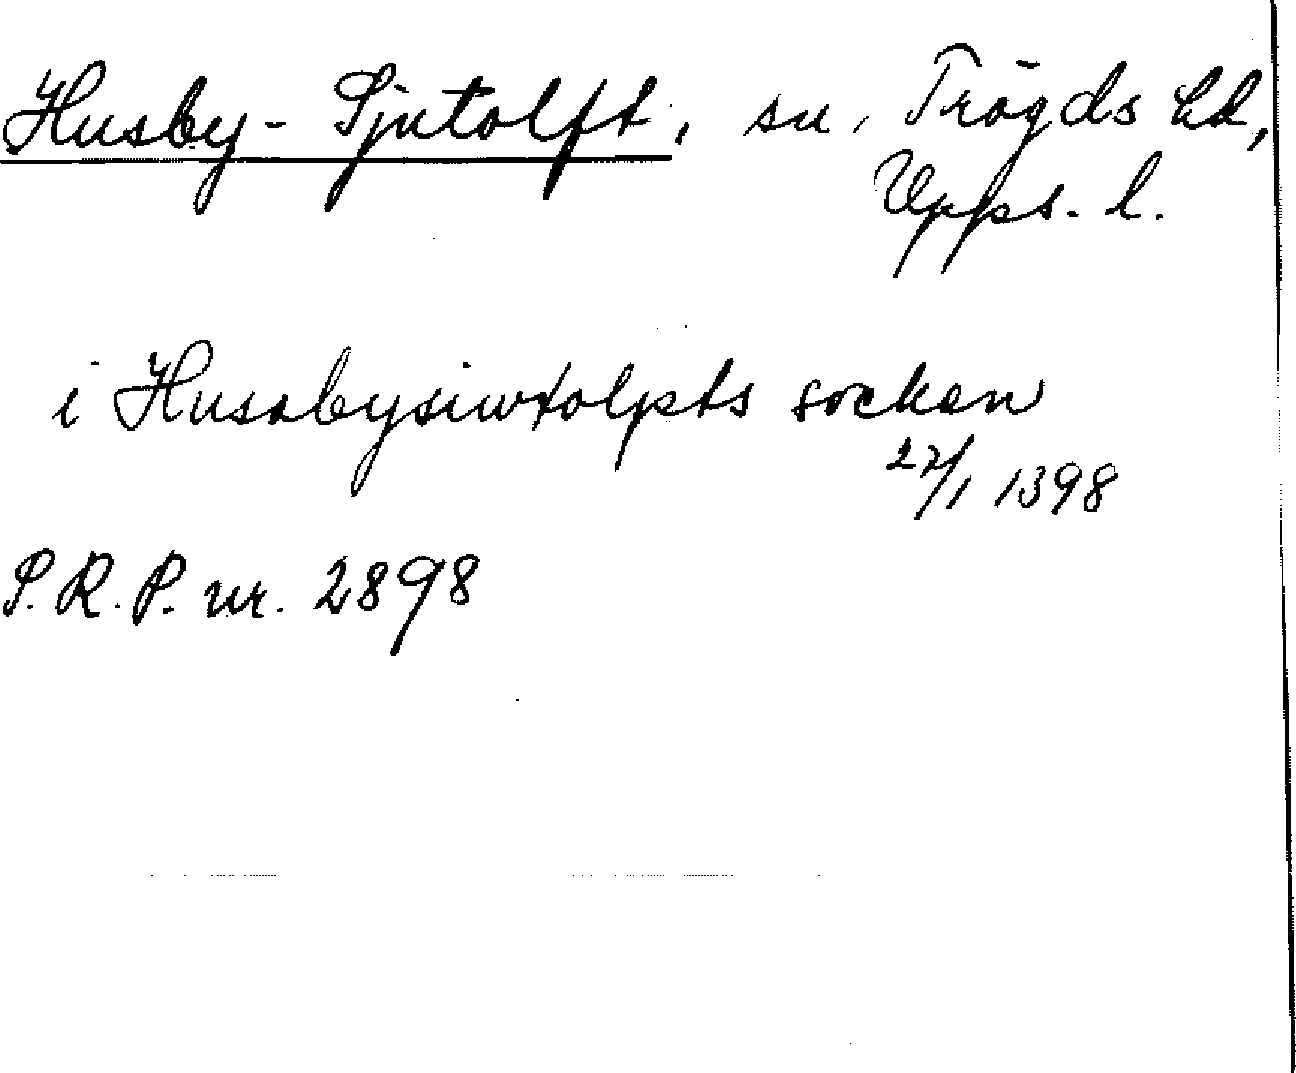 Husby-Sjutolft, sn, Trögds hd,
Upps. l.
i Husabysiwtolpts sockan
27/1 1398
S.R.P. nr. 2898